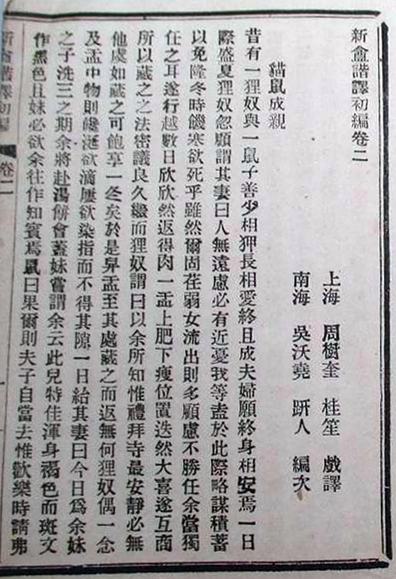 新盦諧譯初編卷二
上海 周樹奎 桂笙 戲譯
南海 吳沃堯 趼人 編次
貓鼠成親
昔有一狸奴與一鼠子善少相狎長相愛終且成夫婦願終身相安焉一日
際盛夏狸奴忽顧謂其妻曰人無遠慮必有近憂我等盍於此際略謀積蓄
以免隆冬時饑寒欲死乎雖然爾固荏弱女流出則多顧慮不勝任余當獨
任之耳遂行越數日欣欣然返得肉一盂上肥下瘦位置迭然大喜遂互商
所以藏之之法密議良久繼而狸奴謂曰以余所知惟禮拜寺最安靜必無
他虞如藏之可飽享一冬矣於是舁盂至其處藏之而返無何狸奴偶一念
及盂中物則饞涎欲滴屢欲染指而不得其隙一日紿其妻曰今日為余妹
之子洗三之期余將赴湯餅會蓋妹嘗謂余云此兒特佳渾身褐色而斑文
作黑色且妹必欲余往作知賓焉鼠曰果爾則夫子自當去惟歡樂時請弗
新盦諧譯初編 卷二